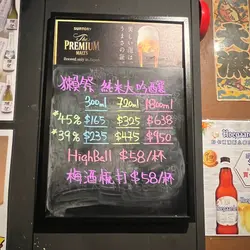 SUNTORY
The
PREMIUM
MALT'S
美しい泡は
うまさの証
獺祭 純米大吟釀
300ml 720ml 1800ml
*45% $165 $325 $638
*39% $235 $475 $950
HighBall $58/杯
梅酒梳打 $58/杯
Hoegaarden